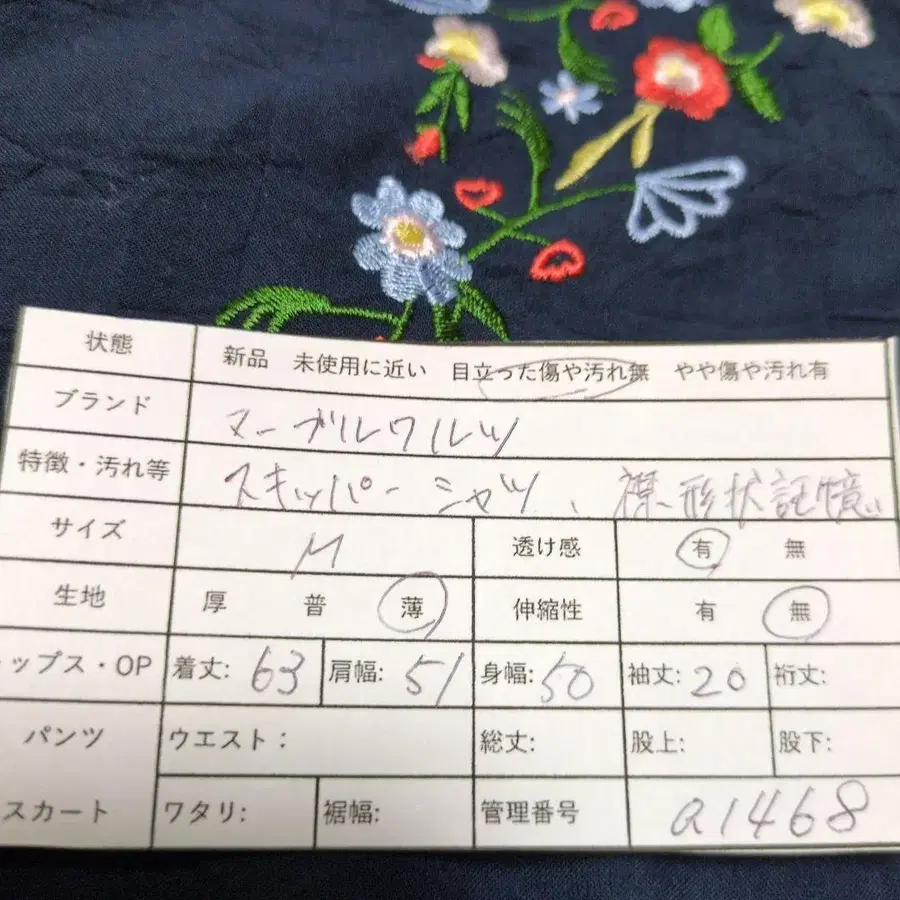 状態 新品 未使用に近い 目立った傷や汚れ無 やや傷や汚れ有
ブランド マーブルワルツ
特徴・汚れ等 スキッパーシャツ、襟形状記憶
サイズ M 透け感 有 無
生地 厚 普 薄 伸縮性 有 無
ップス・OP 着丈: 63 肩幅: 51 身幅: 50 袖丈: 20 裄丈:
パンツ ウエスト: 総丈: 股上: 股下:
スカート ワタリ: 裾幅: 管理番号 a1468